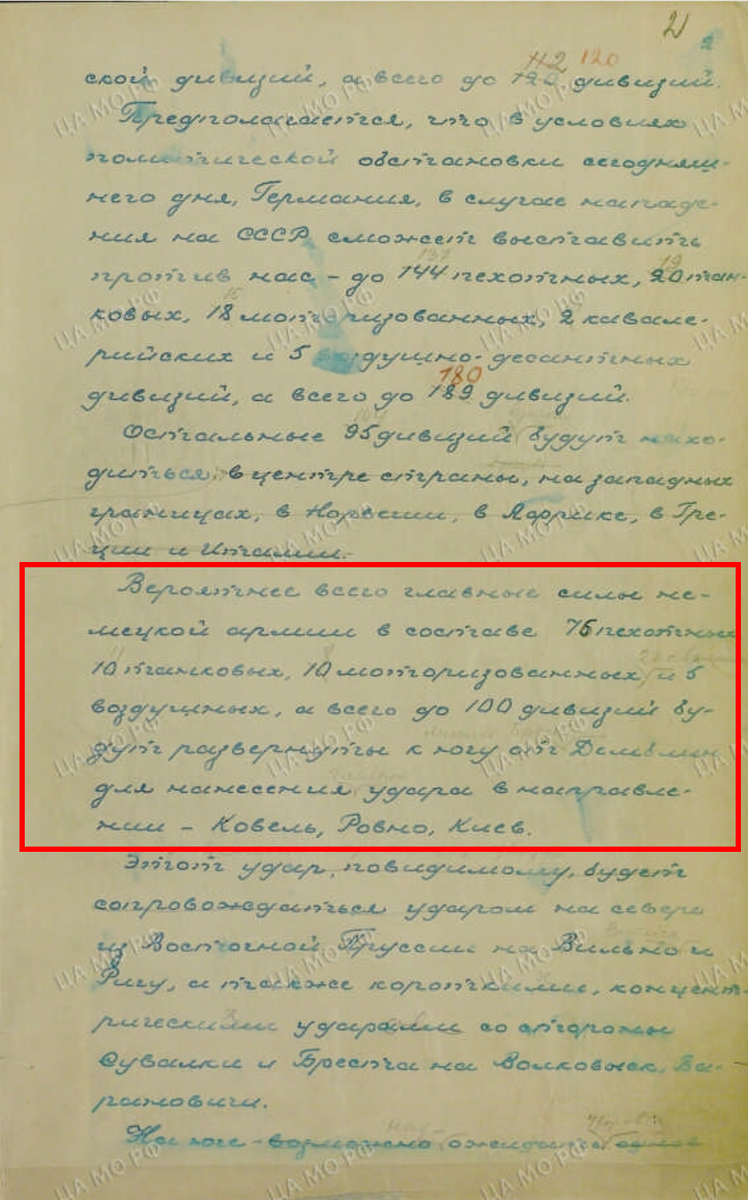 2
112 120
ской дивизий, а всего до 120 дивизий.
Предполагается, что в условиях
политической обстановки сегодняш-
него дня, Германия, в случае нападе-
ния на СССР сможет выставить
137 19
против нас – до 144 пехотных, 20 тан-
15
ковых, 18 моторизованных, 2 кавале-
рийских и 5 воздушно-десантных
180
дивизий, а всего до 189 дивизий.
Остальные 95 дивизий будут нахо-
диться в центре страны, на западных
границах, в Норвегии, в Африке, в Гре-
ции и Италии.
Вероятнее всего главные силы не-
мецкой армии в составе 76 пехотных
11 8
10 танковых, 10 моторизованных, и 5
воздушных, а всего до 100 дивизий бу-
дут развернуты к югу от Демблин
для нанесения удара в направле-
нии – Ковель, Ровно, Киев.
Этот удар, повидимому, будет
сопровождаться ударом на севере
из Восточной Пруссии на Вильно и
Ригу, а также короткими, концент-
рическими ударами со стороны
Сувалки и Бреста на Волковыск, Ба-
рановичи.
На юге – возможно ожидать
ЦА МО РФ